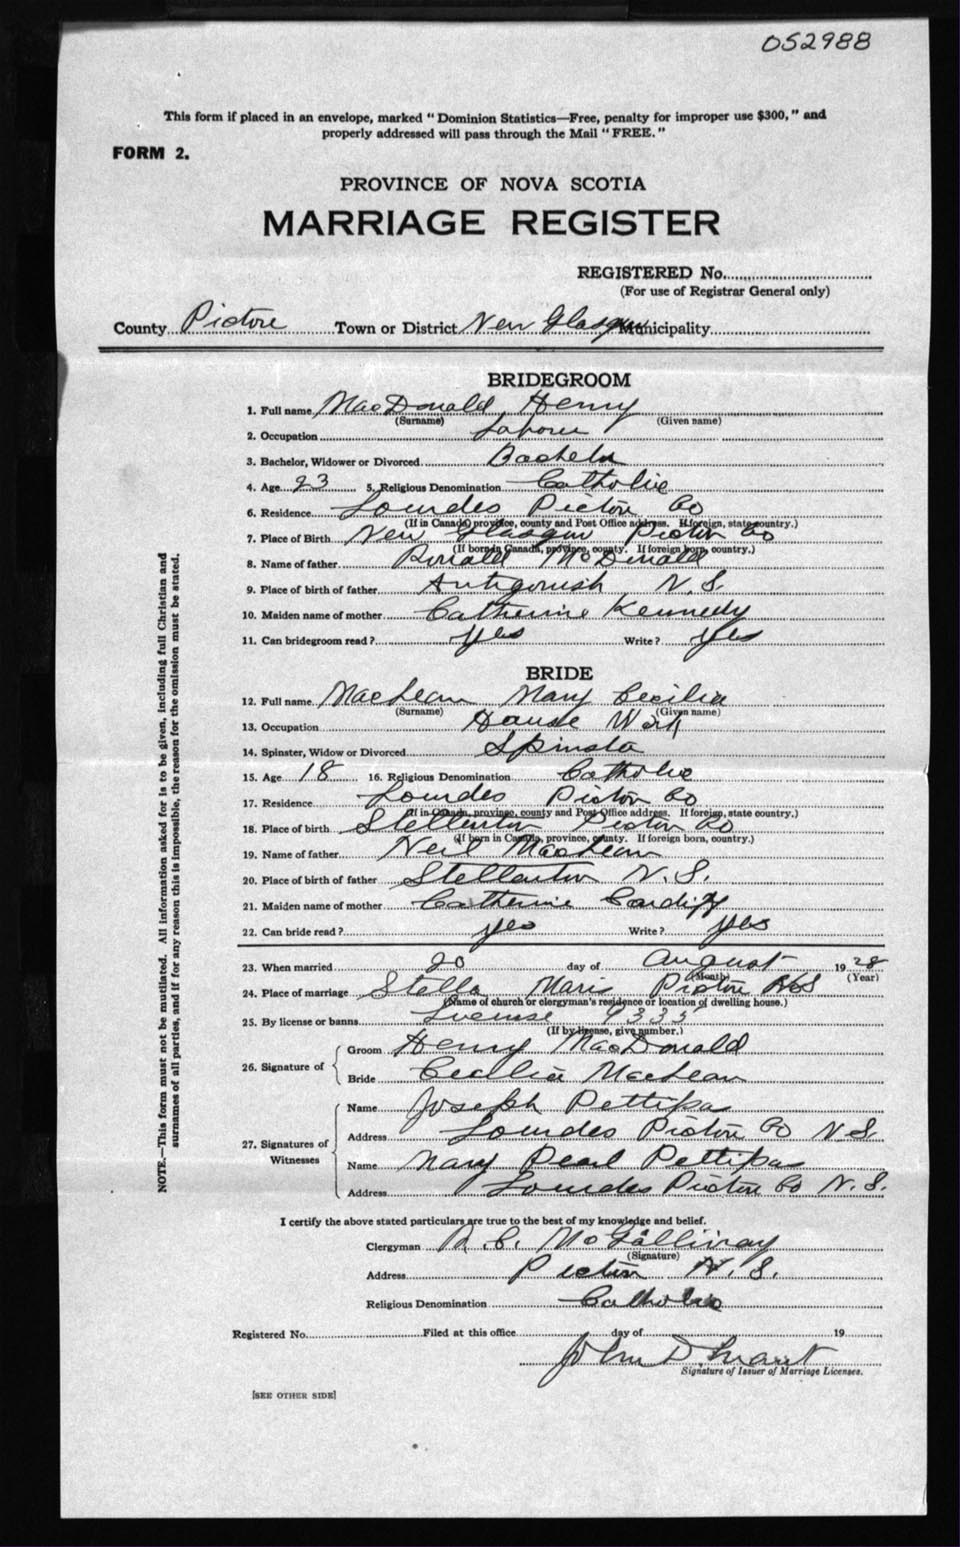 052988
This form if placed in an envelope, marked "Dominion Statistics—Free, penalty for improper use $300," and
properly addressed will pass through the Mail "FREE."
FORM 2.
PROVINCE OF NOVA SCOTIA
MARRIAGE REGISTER
REGISTERED No.
(For use of Registrar General only)
County Pictou Town or District New Glasgow Municipality
BRIDEGROOM
1. Full name MacDonald Henry
(Surname) (Given name)
2. Occupation Laborer
3. Bachelor, Widower or Divorced Bachelor
4. Age 23 5. Religious Denomination Catholic
6. Residence Lourdes Pictou Co
(If in Canada, province, county and Post Office address. If foreign, state country.)
7. Place of Birth New Glasgow Pictou Co
(If born in Canada, province, county. If foreign born, country.)
8. Name of father Ronald McDonald
9. Place of birth of father Antigonish N.S.
10. Maiden name of mother Catherine Kennedy
11. Can bridegroom read? yes Write? yes
BRIDE
12. Full name MacLean Mary Cecilia
(Surname) (Given name)
13. Occupation House Work
14. Spinster, Widow or Divorced Spinster
15. Age 18 16. Religious Denomination Catholic
17. Residence Lourdes Pictou Co
(If in Canada, province, county and Post Office address. If foreign, state country.)
18. Place of birth Stellarton Pictou Co
(If born in Canada, province, county. If foreign born, country.)
19. Name of father Neil MacLean
20. Place of birth of father Stellarton N.S.
21. Maiden name of mother Catherine
22. Can bride read? yes Write? yes
23. When married 20 day of August 1928
(Month) (Year)
24. Place of marriage Stella Maris Pictou N S
(Name of church or clergyman's residence or location of dwelling house.)
25. By license or banns License 9335
(If by license, give number.)
26. Signature of
Groom Henry MacDonald
Bride Cecilia MacLean
27. Signatures of Witnesses
Name Joseph Pettipas
Address Lourdes Pictou Co N.S.
Name Mary Pearl Pettipas
Address Lourdes Pictou Co N.S.
I certify the above stated particulars are true to the best of my knowledge and belief.
Clergyman McGillivray
(Signature)
Address Pictou N.S.
Religious Denomination Catholic
Registered No. Filed at this office day of 19
John D. Grant
Signature of Issuer of Marriage Licenses.
[SEE OTHER SIDE]
NOTE.—This form must not be mutilated. All information asked for is to be given, including full Christian and
surnames of all parties, and if for any reason this is impossible, the reason for the omission must be stated.